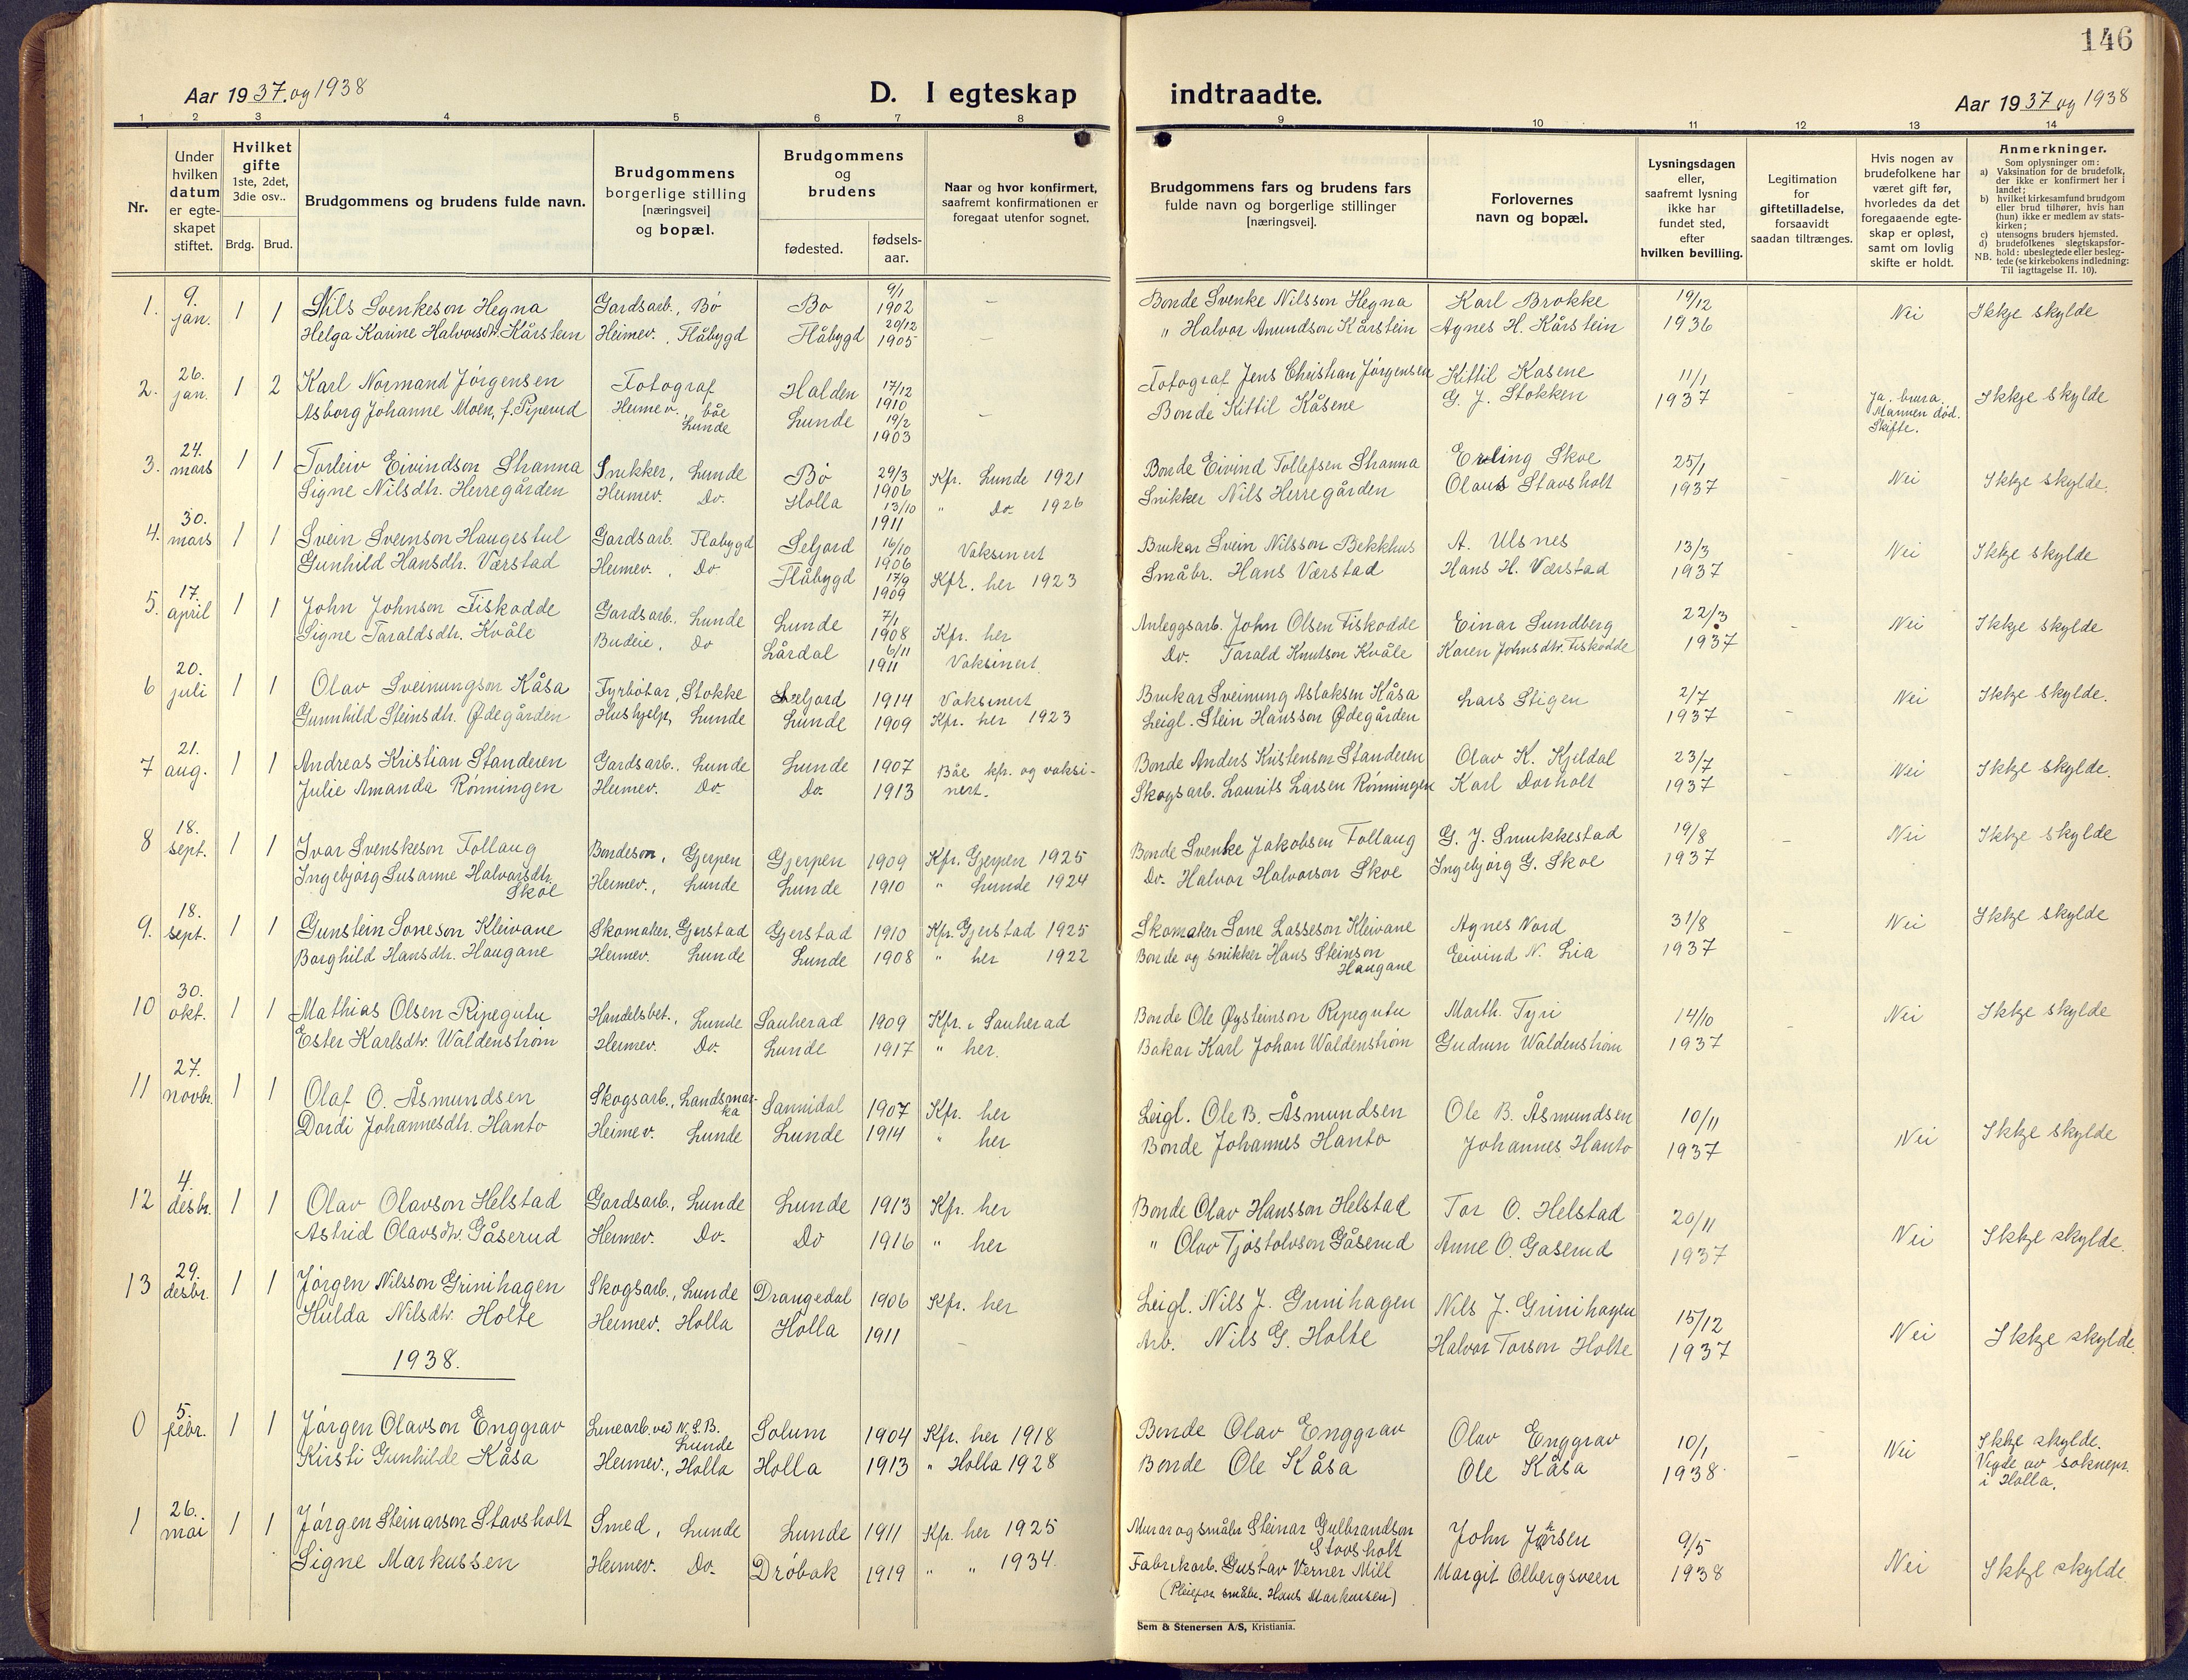 146
Aar 1937 og 1938
D. I egteskap indtraadte.
Aar 1937 og 1938
1 2 3 4 5 6 7 8 9 10 11 12 13 14
Nr.
Under hvilken datum er egteskapet stiftet.
Hvilket gifte 1ste, 2det, 3die osv..
Brdg. Brud.
Brudgommens og brudens fulde navn.
Brudgommens borgerlige stilling [næringsvei] og bopæl.
Brudgommens og brudens
fødested.
fødsels-aar.
Naar og hvor konfirmert, saafremt konfirmationen er foregaat utenfor sognet.
Brudgommens fars og brudens fars fulde navn og borgerlige stillinger [næringsvei].
Forlovernes navn og bopæl.
Lysningsdagen eller, saafremt lysning ikke har fundet sted, efter hvilken bevilling.
Legitimation for giftetilladelse, forsaavidt saadan tiltrænges.
Hvis nogen av brudefolkene har været gift før, hvorledes da det foregaaende egteskap er opløst, samt om lovlig skifte er holdt.
Anmerkninger.
Som oplysninger om:
a) Vaksination for de brudefolk, der ikke er konfirmert her i landet;
b) hvilket kirkesamfund brudgom eller brud tilhører, hvis han (hun) ikke er medlem av statskirken;
c) utensogns bruders hjemsted.
d) brudefolkenes slegtskapsforhold: ubeslegtede eller beslegtede (se kirkebokens indledning:
NB. Til iagttagelse II. 10).
1. 9. jan. 1 1 Nils Svenkeson Hegna Gardsarb., Bø Bø 9/1 1902 – Bonde Svenke Nilsson Hegna Karl Brokke 19/12 1936 Nei Ikkje skylde
Helga Karine Halvorsdtr. Kårstein Heimev., Flåbygd Flåbygd 20/12 1905 – " Halvor Amundson Kårstein Agnes H. Kårstein
2. 26. jan. 1 2 Karl Normand Jörgensen Fotograf Halden 17/12 1910 Fotograf Jens Christian Jörgensen Kittil Kasene 11/1 1937 - Ja. brura. Mannen død. Skifte. Ikkje skylde
Asborg Johanne Moen, f. Piperud Heimev. båe Lunde Lunde 19/2 1903 – Bonde Kittil Kåsene G. J. Stokken
3. 24. mars 1 1 Torleiv Eivindson Shanna Snikker, Lunde Bø 29/3 1906 Kfr. Lunde 1921 Bonde Eivind Tollefsen Shanna Erling Skoe 25/1 1937 - Nei Ikkje skylde.
Signe Nilsdtr. Herregården Heimev. Do. Holla 13/10 1911 " Do. 1926 Snikker Nils Herregården Olaus Stavsholt
4. 30. mars 1 1 Svein Sveinson Haugestul Gardsarb. Flabygd Seljord 16/10 1906 Vaksinert Brukar Svein Nilsson Bekkhus A. Ulsnes 13/3 1937 - Nei Ikkje skylde
Gunhild Hansdtr. Værstad Heimev., Do Flåbygd 17/9 1909 Kfr. her 1923 Småbr. Hans Værstad Hans H. Værstad
5. 17. april 1 1 John Johnson Fiskodde Gardsarb., Lunde Lunde 7/1 1908 Kfr. her Anleggsarb. John Olsen Fiskodde Einar Sundberg 22/3 1937 - Nei Ikkje skylde
Signe Taraldsdtr. Kvåle Budeie, Do Lårdal 6/11 1911 Vaksinert Do. Tarald Knutson Kvåle Karen Johnsdtr. Fiskodde
6 20. juli 1 1 Olav Sveinungson Kåsa Fyrbøtar, Stokke Seljord 1914 Vaksinert Brukar Sveinung Aslaksen Kåsa Lars Stigen 2/7 1937 - Nei Ikkje skylde.
Gunnhild Steinsdtr. Ødegården Hushjelp, Lunde Lunde 1909 Kfr. her 1923 Leigl. Stein Hansson Ødegården
7 21. aug. 1 1 Andreas Kristian Standeren Gardsarb., Lunde Lunde 1907 Båe kfr. og vaksinert. Bonde Anders Kristenson Standeren Olav K. Kjeldal 23/7 1937 Nei Ikkje skylde.
Julie Amanda Rönningen Heimev. Do. Do. 1913 Skogsarb. Laurits Larsen Rønningen Karl Dorholt
8 18. sept. 1 1 Ivar Svenskeson Follaug Bondeson, Gjerpen Gjerpen 1909 Kfr. Gjerpen 1925 Bonde Svenke Jakobsen Follaug G. J. Smukkestad 19/8 1937 - Nei Ikkje skylde
Ingebjørg Susanne Halvorsdtr. Skoe Heimev., Lunde Lunde 1910 " Lunde 1924 Do. Halvor Halvorson Skoe Ingebjørg G. Skoe
9. 18. sept. 1 1 Gunstein Soneson Kleivane Skomaker. Gjerstad Gjerstad 1910 Kfr. Gjerstad 1925 Skomaker Sone Lasseson Kleivane Agnes Nord 31/8 1937 - Nei Ikkje skylde
Borghild Hansdtr. Haugane Heimev. Lunde Lunde 1908 " her 1922 Bonde og snikker Hans Steinson Haugane Eivind N. Lia
10 30. okt. 1 1 Mathias Olsen Ripegutu Handelsbet., Lunde Sauherad 1909 Kfr. i Sauherad Bonde Ole Øysteinson Ripegutu Marth. Tyri 14/10 1937 - Nei Ikkje skylde
Ester Karlsdtr. Waldenstrøm Heimev. Do. Lunde 1917 " her. Bakar Karl Johan Waldenstrøm Gudrun Waldenstrøm
11 27. novbr. 1 1 Olaf O. Åsmundsen Skogsarb., Landsmarka Sannidal 1907 Kfr. her Leigl. Ole B. Åsmundsen Ole B. Åsmundsen 10/11 1937 - Nei Ikkje skylde
Dordi Johannesdtr. Hanto Heimev. Lunde Lunde 1914 " her Bonde Johannes Hanto Johannes Hanto
12 4. desbr. 1 1 Olav Olavson Helstad Gardsarb., Lunde Lunde 1913 Kfr. her Bonde Olav Hansson Helstad Tor O. Helstad 20/11 1937 Nei Ikkje skylde.
Astrid Olavsdtr. Gåserud Heimev. Do. Do 1916 " her " Olav Tjöstolvson Gåserud Anne O. Gaserud
13 29. desbr. 1 1 Jörgen Nilsson Grinihagen Skogsarb., Lunde Drangedal 1906 Kfr. her Leigl. Nils J. Grinihagen Nils J. Grinihagen 15/12 1937 Nei Ikkje skylde.
Hulda Nilsdtr. Holte Heimev. Holla Holla 1911 – Arb. Nils G. Holte Halvor Torson Holte
1938.
0 5. febr. 1 1 Jörgen Olavson Enggrav Linearb. ved N.S.B. Lunde Solum 1904 Kfr. her 1918 Bonde Olav Enggrav Olav Enggrav 10/1 1938 - Nei Ikkje skylde. Vigde av soknepr. i Holla.
Kirsti Gunhilde Kåsa Heimev., Holla Holla 1913 " Holla 1928 Bonde Ole Kåsa Ole Kåsa
1 26. mai 1 1 Jörgen Steinarson Stavsholt Smed, Lunde Lunde 1911 Kfr. her 1925 Murar og småbr Steinar Gulbrandson Stavsholt John 9/5 1938 Nei Ikkje skylde
Signe Markussen Heimev. Do. Dröbak 1919 " " 1934. Fabrikarb. Gustav Verner Mill Margit Olbergsveen
(Pleiefar småbr. Hans Markussen)
Sem & Stenersen A/S, Kristiania.